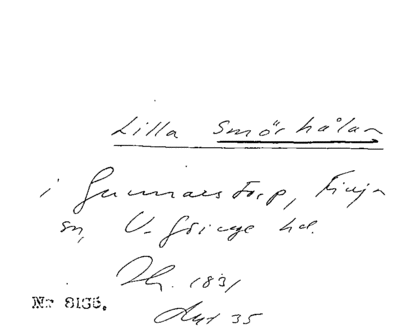 Lilla Smörhålan
i Gunnarstorp, Finja
sn, V. Göinge hd.
Th. 1831
Akt 35
Nr 8135.